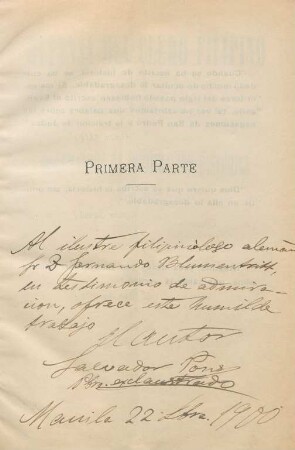 PRIMERA PARTE
Al ilustre filipinologo alemán
Sr D. Fernando Blumentritt,
en testimonio de admira-
cion, ofrece este humilde
trabajo
El autor
Salvador Pons
Pbro. exclaustrado
Manila 22 1900